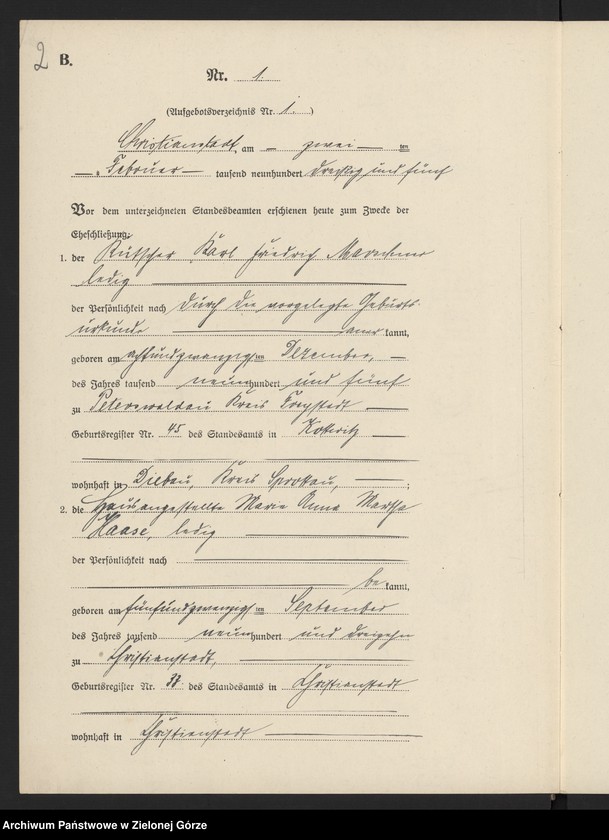 2 B.
Nr. 1.
(Aufgebotsverzeichnis Nr. 1.)
Christianstadt, am zwei ten
Februar tausend neunhundert dreißig und fünf
Vor dem unterzeichneten Standesbeamten erschienen heute zum Zwecke der
Eheschließung:
1. der Kutscher Karl Friedrich
ledig
der Persönlichkeit nach durch die vorgelegte Geburts-
urkunde aner kannt,
geboren am achtundzwanzigsten Dezember,
des Jahres tausend neunhundert und fünf
zu Peterswaldau Kreis Freystadt
Geburtsregister Nr. 45 des Standesamts in
wohnhaft in Diebau, Kreis Sprottau, ;
2. die Hausangestellte Marie Anna Martha
Haase, ledig
der Persönlichkeit nach
be kannt,
geboren am fünfundzwanzigsten September
des Jahres tausend neunhundert und dreizehn
zu Christianstadt,
Geburtsregister Nr. 38 des Standesamts in Christianstadt
wohnhaft in Christianstadt
Archiwum Państwowe w Zielonej Górze